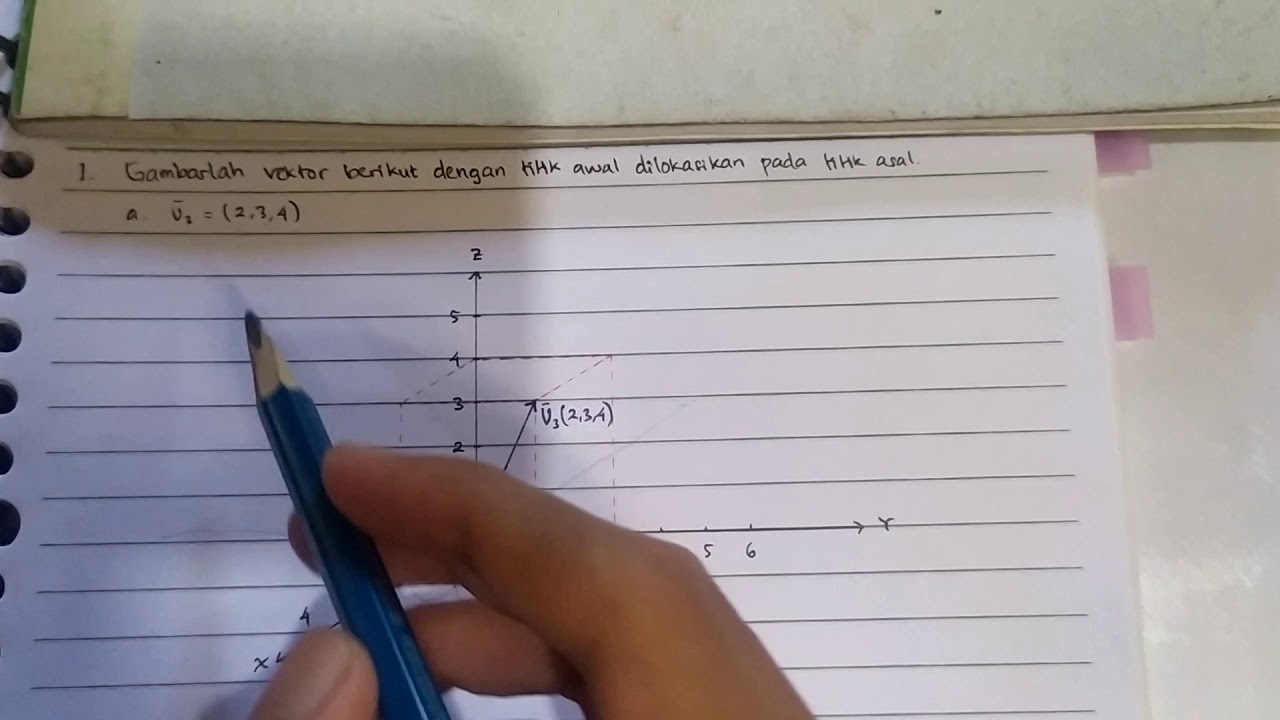 1. Gambarlah vektor berikut dengan titik awal dilokasikan pada titik asal.
a. v̄₃ = (2,3,4)
z
5
4
3
v̄₃(2,3,4)
2
Y
5 6
4
x